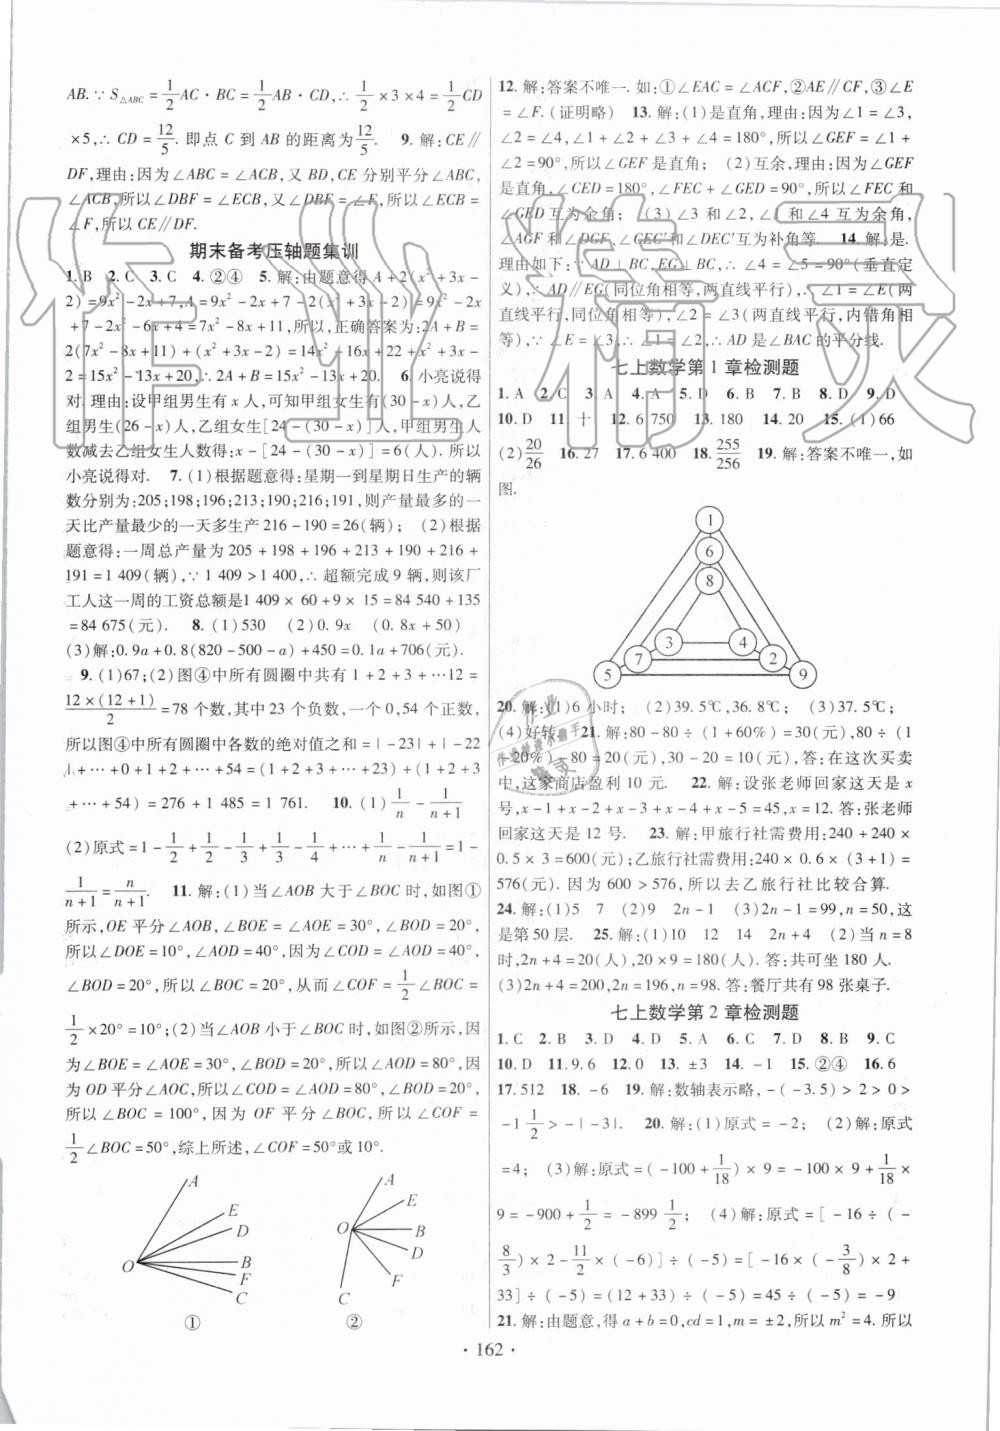 AB.∵S△ABC=1/2AC·BC=1/2AB·CD,∴1/2×3×4=1/2CD
×5,∴CD=12/5. 即点 C 到 AB 的距离为12/5. 9. 解:CE∥
DF,理由:因为∠ABC=∠ACB,又 BD,CE 分别平分∠ABC,
∠ACB,所以∠DBF=∠ECB,又∠DBF=∠F,所以∠ECB
=∠F,所以CE∥DF.
期末备考压轴题集训
1. B 2. C 3. C 4. ②④ 5. 解:由题意得A+2(x²+3x-
2)=9x²-2x+7,A=9x²-2x+7-2(x²+3x-2)=9x²-2x
+7-2x²-6x+4=7x²-8x+11,所以,正确答案为:2A+B=
2(7x²-8x+11)+x²+3x-2=14x²-16x+22+x²+3x-
2=15x²-13x+20,∴2A+B=15x²-13x+20. 6. 小亮说得
对. 理由:设甲组男生有 x 人,可知甲组女生有(30-x)人,乙
组男生(26-x)人,乙组女生[24-(30-x)]人,甲组男生人
数减去乙组女生人数得:x-[24-(30-x)]=6(人). 所以
小亮说得对. 7. (1)根据题意得:星期一到星期日生产的辆
数分别为:205;198;196;213;190;216;191,则产量最多的一
天比产量最少的一天多生产 216-190=26(辆); (2)根据
题意得:一周总产量为 205+198+196+213+190+216+
191=1 409(辆),∵1 409>1 400,∴超额完成 9 辆,则该厂
工人这一周的工资总额是1 409×60+9×15=84 540+135
=84 675(元). 8. (1)530 (2)0.9x (0.8x+50)
(3)解:0.9a+0.8(820-500-a)+450=0.1a+706(元).
9. (1)67;(2)图④中所有圆圈中共有 1+2+3+…12=
12×(12+1)/2=78 个数,其中 23 个负数,一个 0,54 个正数,
所以图④中所有圆圈中各数的绝对值之和=|-23|+|-22
|+…+0+1+2+…+54=(1+2+3+…+23)+(1+2+3
+…+54)=276+1 485=1 761. 10. (1)1/n-1/(n+1)
(2)原式=1-1/2+1/2-1/3+1/3-1/4+…+1/n-1/(n+1)=1-
1/(n+1)=n/(n+1). 11. 解:(1)当∠AOB 大于∠BOC 时,如图①
所示,OE 平分∠AOB,∠BOE=∠AOE=30°,∠BOD=20°,
所以∠DOE=10°,∠AOD=40°,因为∠COD=∠AOD=40°,
∠BOD=20°,所以∠BOC=20°,从而∠COF=1/2∠BOC=
1/2×20°=10°;(2)当∠AOB 小于∠BOC 时,如图②所示,因
为∠BOE=∠AOE=30°,∠BOD=20°,所以∠AOD=80°,因
为 OD 平分∠AOC,所以∠COD=∠AOD=80°,∠BOD=20°,
所以∠BOC=100°,因为 OF 平分∠BOC,所以∠COF=
1/2∠BOC=50°,综上所述,∠COF=50°或10°.
A
E
D
B
F
C
O
①
A
E
B
D
F
C
O
②
12. 解:答案不唯一. 如:①∠EAC=∠ACF,②AE∥CF,③∠E
=∠F.(证明略) 13. 解:(1)是直角,理由:因为∠1=∠3,
∠2=∠4,∠1+∠2+∠3+∠4=180°,所以∠GEF=∠1+
∠2=90°,所以∠GEF 是直角; (2)互余,理由:因为∠GEF
是直角,∠CED=180°,∠FEC+∠GED=90°,所以∠FEC 和
∠GED互为余角; (3)∠3和∠4,∠1和∠4互为余角,
∠AGF和∠DGF,∠GEC'和∠DEC'互为补角等. 14. 解:是.
理由如下:∵AD⊥BC,EG⊥BC,∴∠4=∠5=90°(垂直定
义),∴AD∥EG(同位角相等,两直线平行),∴∠1=∠E(两
直线平行,同位角相等),∠2=∠3(两直线平行,内错角相
等).∵∠E=∠3,∴∠1=∠2,∴AD是∠BAC的平分线.
七上数学第1章检测题
1. A 2. C 3. C 4. A 5. D 6. B 7. B 8. D 9. D
10. D 11. 十 12. 6 750 13. 180 14. 20 15. (1)66
(2)20/26 16. 27 17. 6 400 18. 255/256 19. 解:答案不唯一,如
图.
1
6
8
3
4
7
2
5
9
20. 解:(1)6 小时; (2)39.5℃,36.8℃; (3)37.5℃;
(4)好转. 21. 解:80-80÷(1+60%)=30(元),80÷(1
-20%)-80=20(元),30-20=10(元). 答:在这次买卖
中,这家商店盈利 10 元. 22. 解:设张老师回家这天是 x
号,x-1+x-2+x-3+x-4+x-5=45,x=12. 答:张老师
回家这天是 12 号. 23. 解:甲旅行社需费用:240+240×
0.5×3=600(元);乙旅行社需费用:240×0.6×(3+1)=
576(元). 因为 600>576,所以去乙旅行社比较合算.
24. 解:(1)5 7 (2)9 2n-1 (3)2n-1=99,n=50,这
是第50层. 25. 解:(1)10 12 14 2n+4 (2)当 n=8
时,2n+4=20(人),20×9=180(人). 答:共可坐 180 人.
(3)2n+4=200,2n=196,n=98. 答:餐厅共有 98 张桌子.
七上数学第2章检测题
1. C 2. B 3. D 4. D 5. A 6. C 7. D 8. B 9. C
10. D 11. 9.6 12. 0 13. ±3 14. -1 15. ②④ 16. 6
17. 512 18. -6 19. 解:数轴表示略,-(-3.5)>2>0>
-1 1/2>-|-3|. 20. 解:(1)原式=-2; (2)解:原式
=4; (3)解:原式=(-100+1/18)×9=-100×9+1/18×
9=-900+1/2=-899 1/2; (4)解:原式=[-16÷(-
8/3)×2-11/2×(-6)]÷(-5)=[-16×(-3/8)×2+
33]÷(-5)=(12+33)÷(-5)=45÷(-5)=-9
21. 解:由题意,得 a+b=0,cd=1,m=±2,所以 m²=4. 所以
· 162 ·